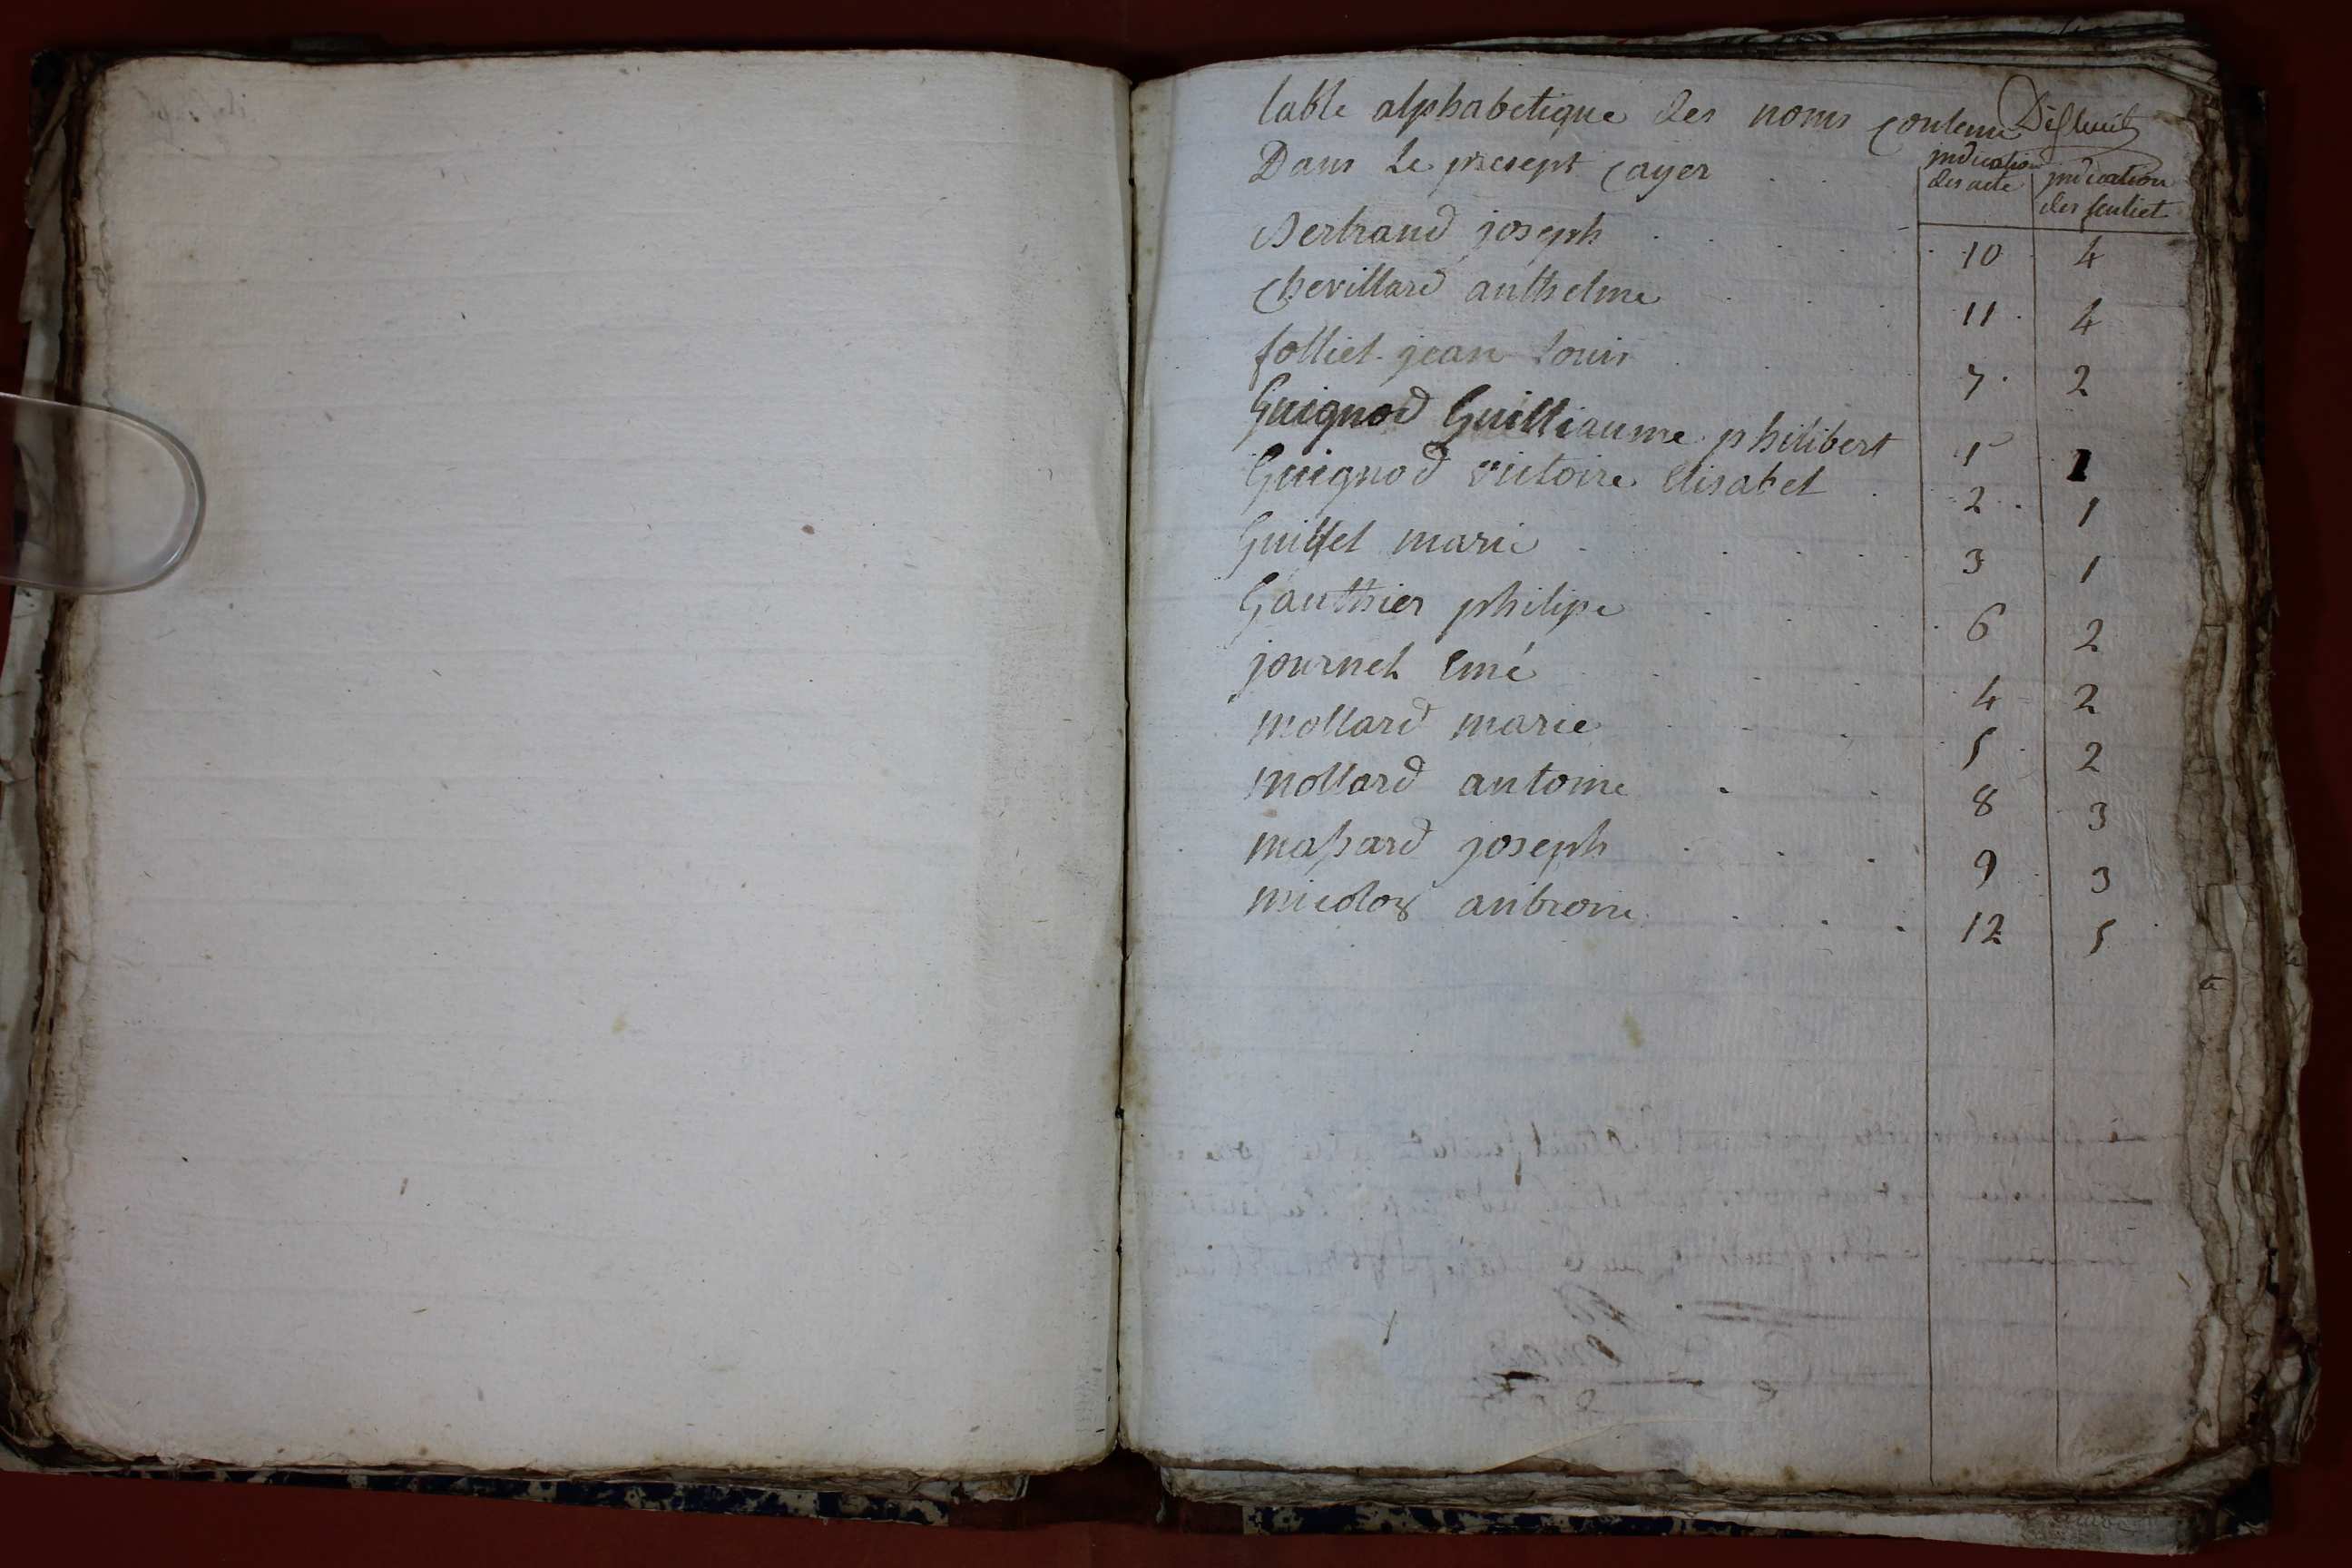 table alphabetique des noms contenu
Dans le present cayer
indication des acte
indication des feuliet
Bertrand joseph 10 4
Chevillard anthelme 11 4
folliet jean louis 7 2
Guignod Guilliaume philibert 1 1
Guignod victoire Elisabet 2 1
Guillet marie 3 1
Gauthier philipe 6 2
journet Emé 4 2
mollard marie 5 2
mollard antoine 8 3
massard joseph 9 3
micoloz anbroine 12 5